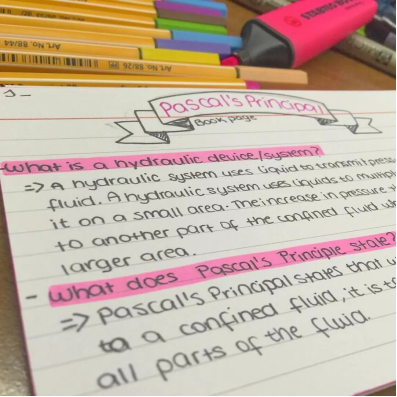 Art. No. 88/44
Art. No. 88/26
STABILO BOSS
Pascal's Principal
Book page
What is a hydraulic device/system?
=> A hydraulic system uses liquid to transmit
fluid. A hydraulic system uses liquids to
it on a small area. The increase in pressure
to another part of the confined fluid
larger area.
- What does Pascal's Principle state?
=> Pascal's Principal states that
to a confined fluid, it is
all parts of the fluid.